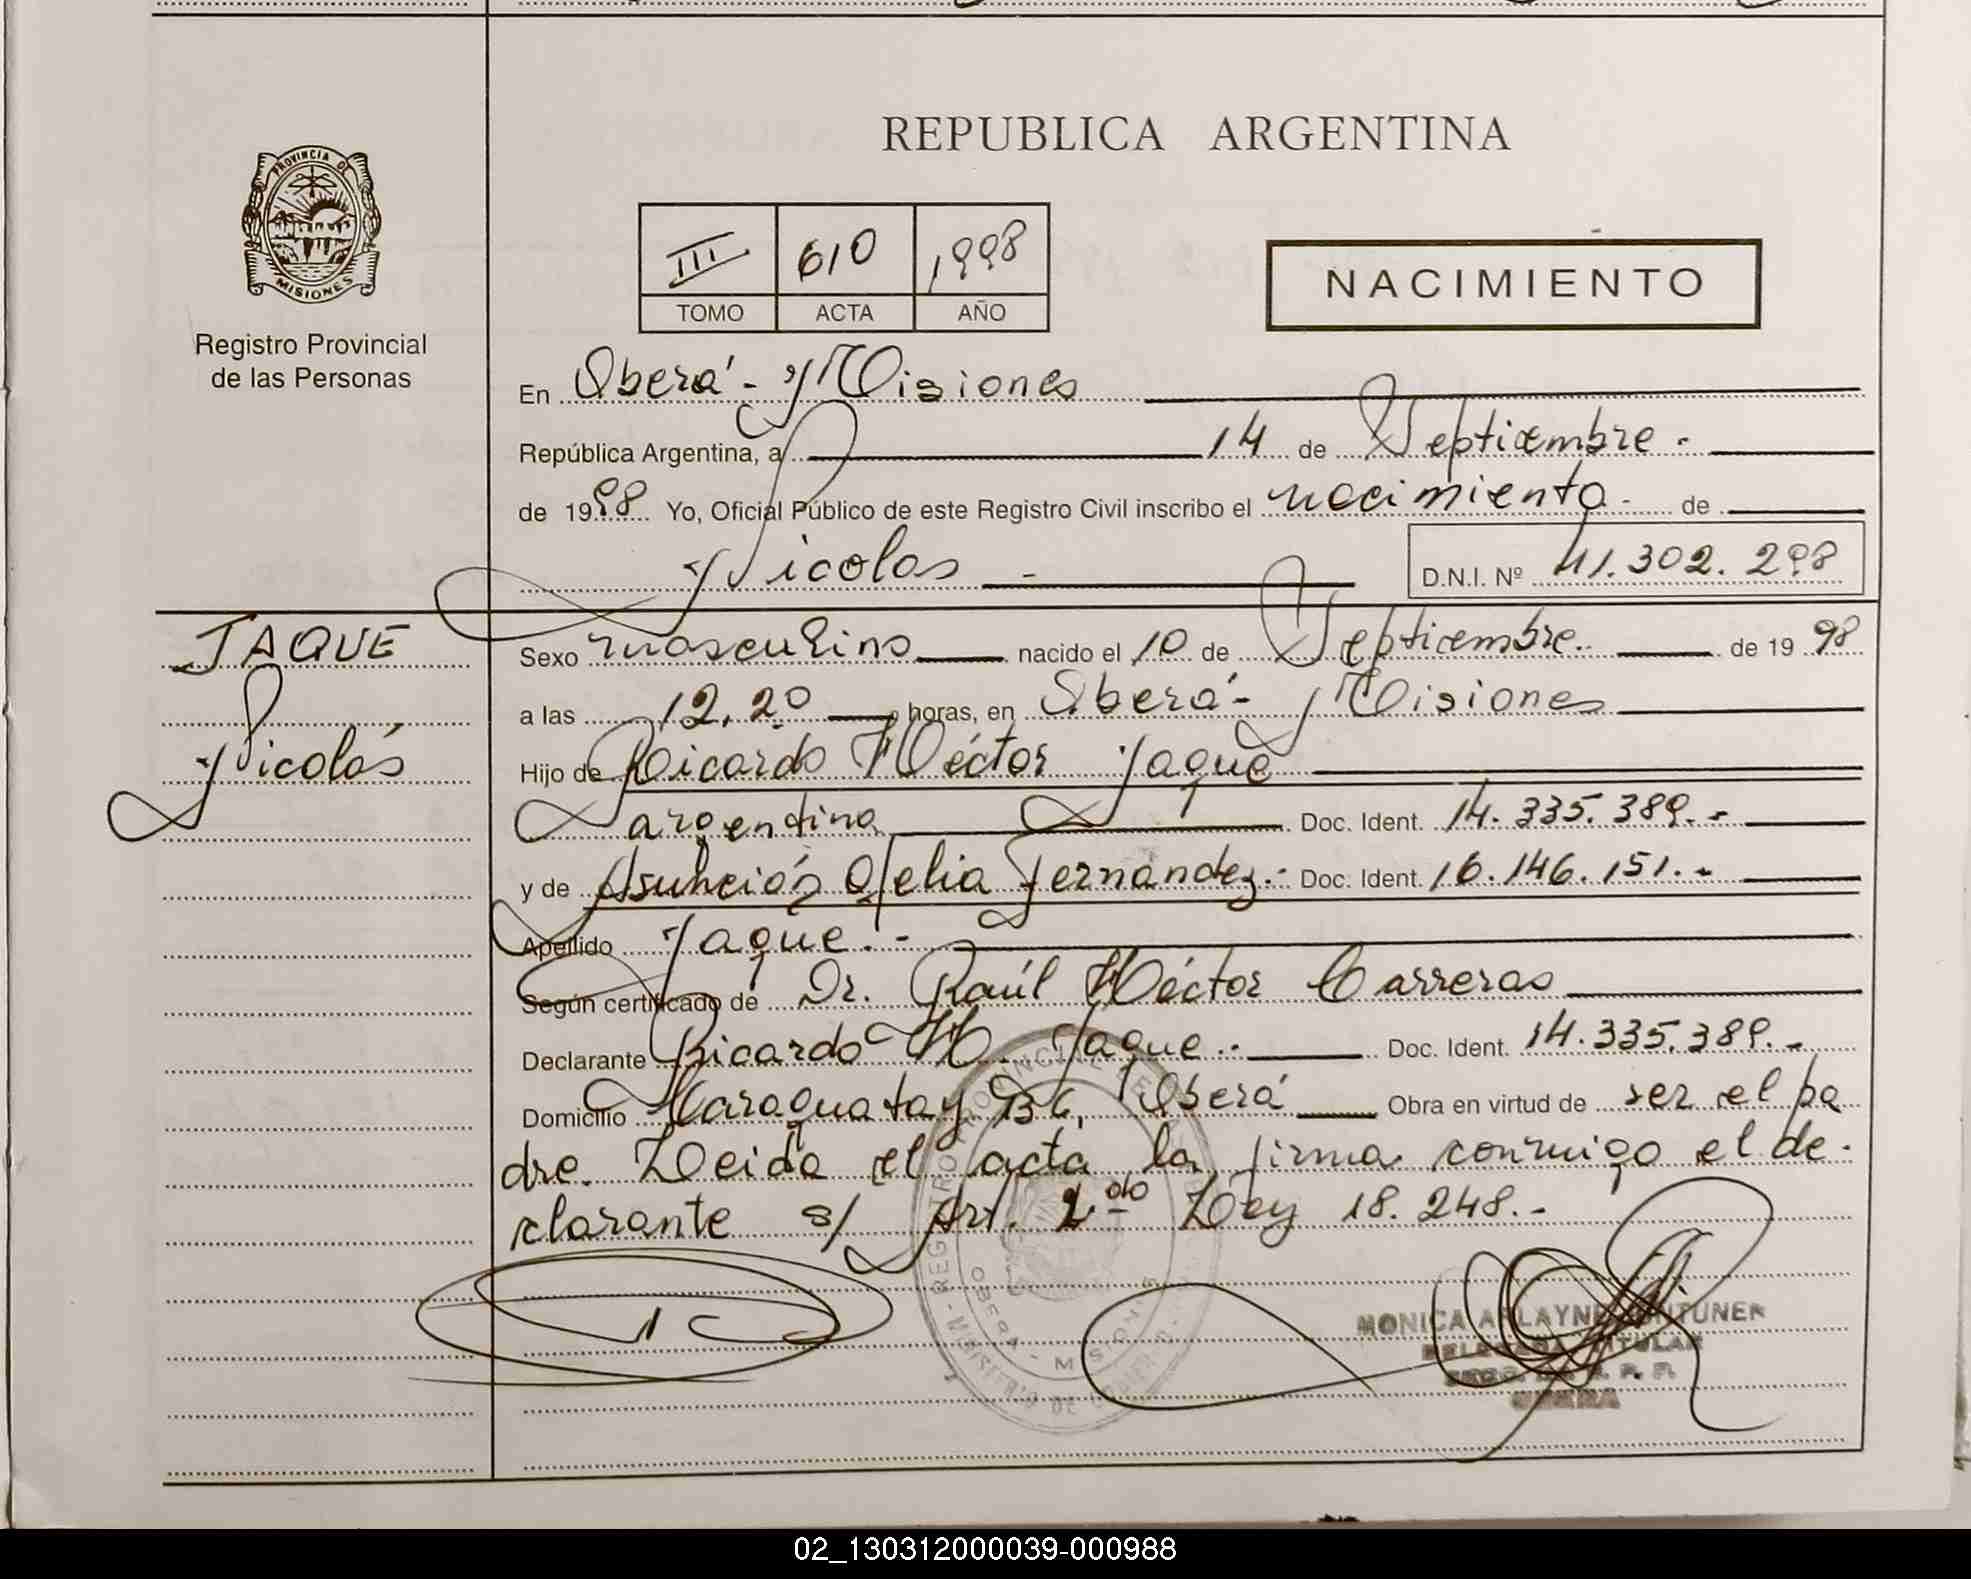 REPUBLICA ARGENTINA
PROVINCIA DE
MISIONES
Registro Provincial
de las Personas
III 610 1998
TOMO ACTA AÑO
NACIMIENTO
En Oberá - Misiones
República Argentina, a 14 de Septiembre.
de 1998 Yo, Oficial Público de este Registro Civil inscribo el nacimiento - de
Nicolás - D.N.I. Nº 41.302.298
JAQUE
Nicolás
Sexo masculino nacido el 10 de Septiembre. de 1998
a las 12,20 horas, en Oberá - Misiones
Hijo de Ricardo Héctor Jaque
Argentina Doc. Ident. 14.335.389.-
y de Asunción Ofelia Fernández.- Doc. Ident. 16.146.151.-
Apellido Jaque.-
Según certificado de Dr. Raúl Héctor Carreras
Declarante Ricardo H. Jaque.- Doc. Ident. 14.335.389.-
Domicilio Oberá Obra en virtud de ser el pa
dre. Leida el acta la firma conmigo el de-
clarante s/ Art. 2do Ley 18.248.-
REGISTRO PROVINCIAL DE LAS
OBERA - MISIONES
MINISTERIO DE GOBIERNO
MONICA
DELEGADA TITULAR
OBERA
02_130312000039-000988